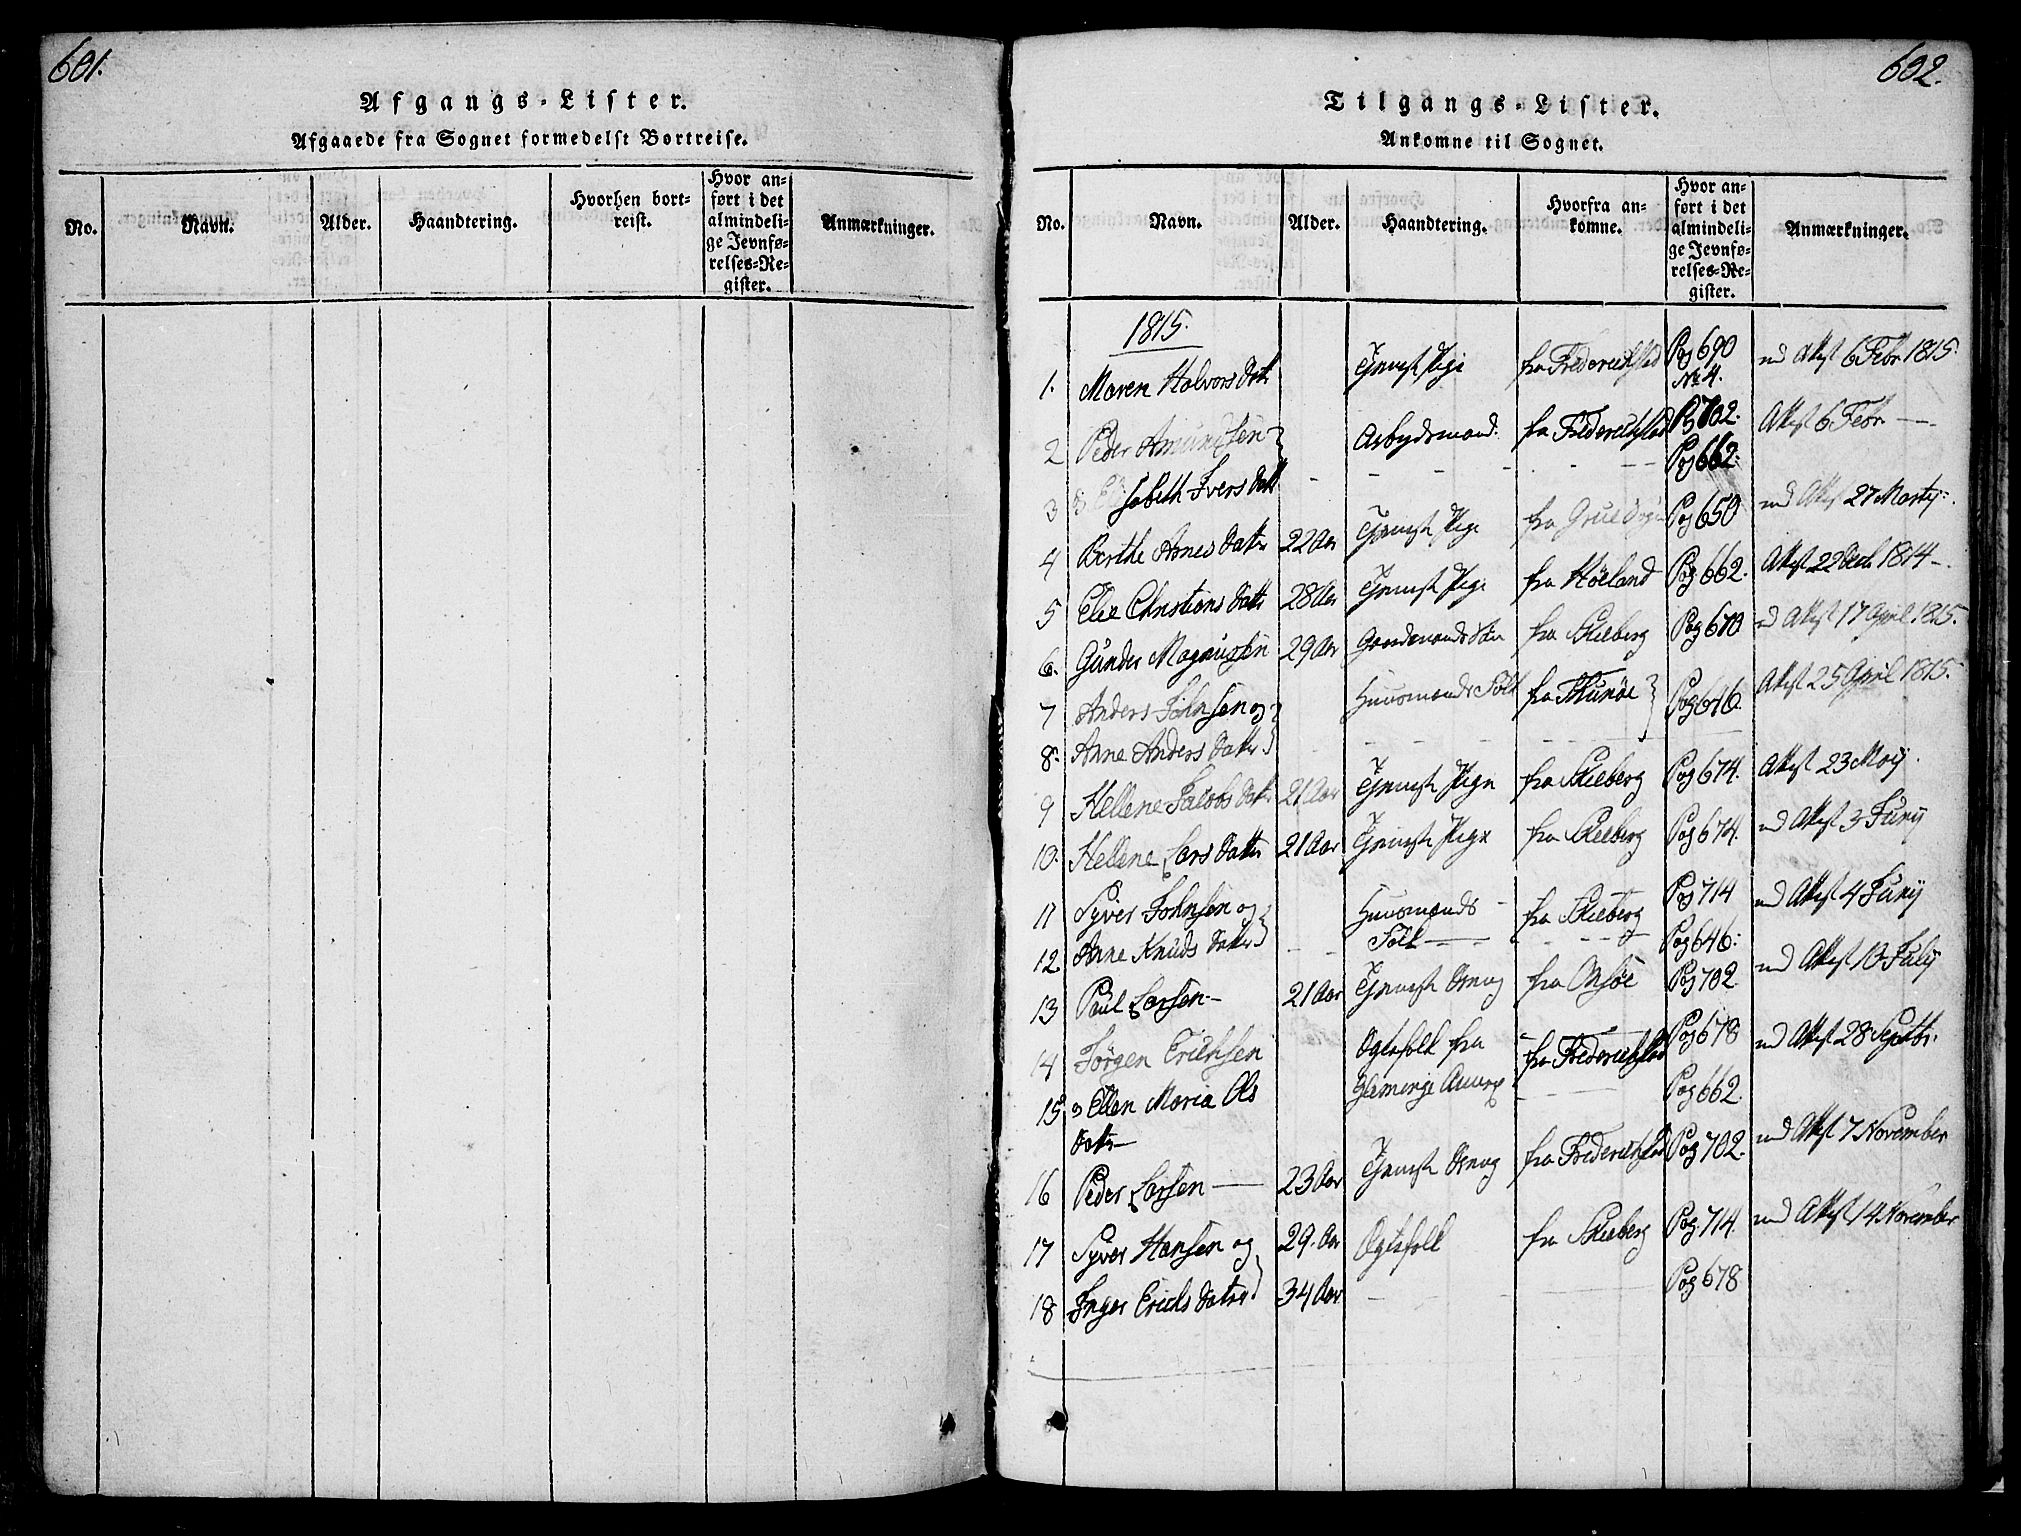 601.
Afgangs-Lister.
Afgaaede fra Sognet formedelst Bortreise.
No. Navn. Alder. Haandtering. Hvorhen bort-reist. Hvor an-ført i det almindeli-ge Jevnfø-relses-Re-gister. Anmærkninger.
602.
Tilgangs-Lister.
Ankomne til Sognet.
No. Navn. Alder. Haandtering. Hvorfra an-komne. Hvor an-ført i det almindeli-ge Jevnfø-relses-Re-gister. Anmærkninger.
1815.
1. Maren Halvors Datr Tjeneste Pige fra Friderichstad Pag 690 No 4. md Attest 6 Febr 1815
2 Peder Amundsen Arbydsmand. fra Friderichstad Pag 702. Attest 6 Febr —
3 Elisabeth Ivers Datt - - - Pag 662.
4 Berthe Arnes Datr 22 Aar Tjeneste Pige fra Grue Pag 650 md Attest 27 Marty
5 Else Christians Datr 28 Aar Tjeneste Pige fra Höeland Pag 662. Attest 22 Decb 1814 -.
6. Gunder Magnusen 29 Aar fra Skieberg Pag 670 md Attest 17 April 1815.
7 Anders Johnsen og Huusmands Folk fra Thunöe Pag 646. Attest 25 April 1815.
8. Anne Anders Datter - - -
9 Hellene Jacobs Datr 21 Aar Tjeneste Pige fra Skieberg Pag 674. Attest 23 May.
10. Hellene Lars Dattr 21 Aar Tjeneste Pige fra Skieberg Pag 674. md Attest 3 Juny
11 Syver Johnsen og Huusmands fra Skieberg Pag 714 md Attest 4 Juny
12. Anne Knuds Datter - - Folk - - - Pag 646.
13 Paul Larsen - 21 Aar Tjeneste Dreng fra Onsöe Pag 702. md Attest 10 July
14 Jörgen Erichsen Egtefolk fra fra Friderichstad Pag 678 md Attest 28 Septbr.
15 og Ellen Maria Ols Pag 662.
Datr —
16 Peder Larsen — 23 Aar Tjeneste Dreng fra Friderichstad Pag 702. md Attest 7 November
17 Syver Hansen og 29. Aar Egtefolk fra Skieberg Pag. 714. md Attest 14 November
18 Inger Erichs Datter 34 Aar - - - Pag 678